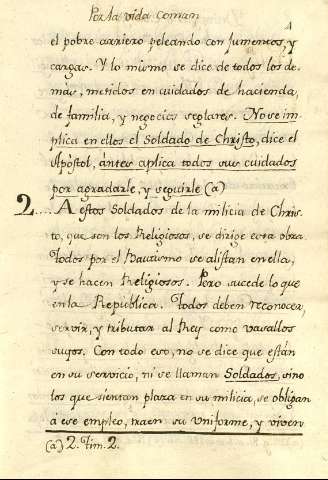 Por la vida comun
4
el pobre arriero peleando con jumentos, y
cargas. Y lo mismo se dice de todos los de-
mas, metidos en cuidados de hacienda,
de familia, y negocios seglares. No se im-
plica en ellos el Soldado de Christo, dice el
Apòstol, àntes aplica todos sus cuidados
por agradarle, y seguirle (a)
2.... A estos Soldados de la milicia de Chris-
to, que son los Religiosos, se dirige esta obra.
Todos por el Bautismo se alistan en ella,
y se hacen Religiosos. Pero sucede lo que
en la Republica. Todos deben reconocer,
servir, y tributar al Rey como vasallos
suyos. Con todo eso, no se dice que estàn
en su servicio, ni se llaman Soldados, sino
los que sientan plaza en su milicia, se obligan
à ese empleo, traen su Uniforme, y viven
(a) 2. Tim. 2.